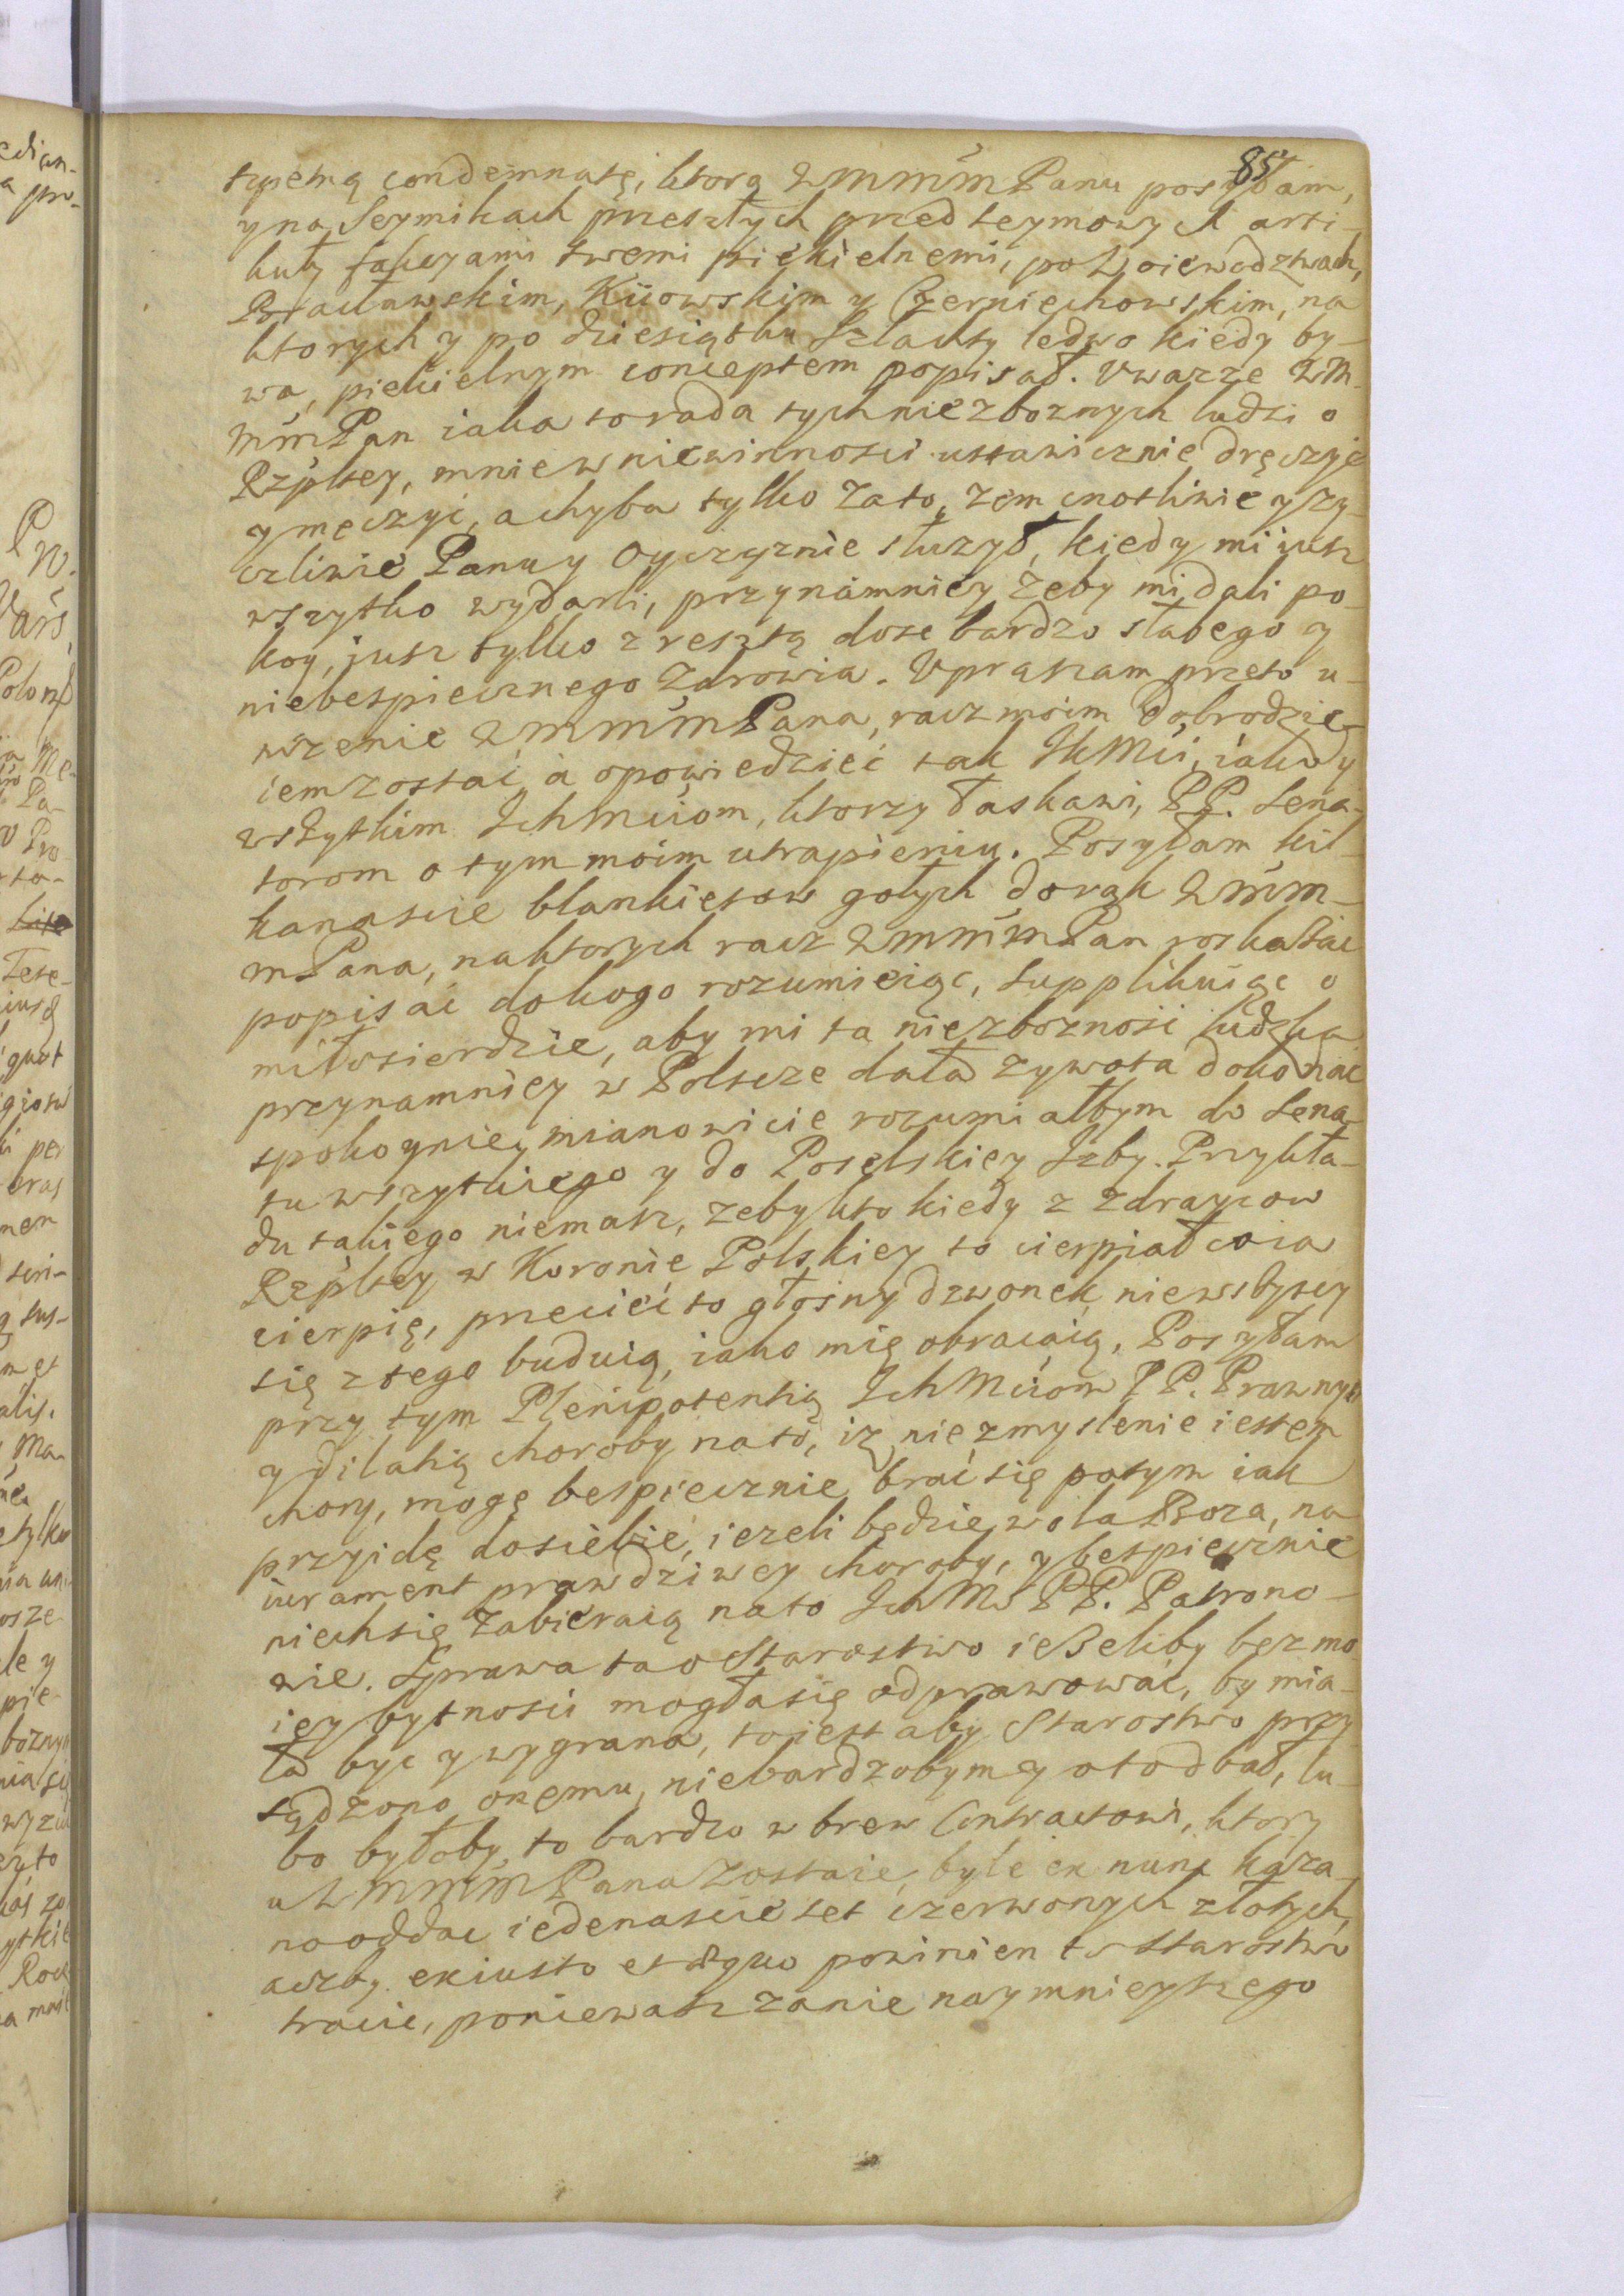 85
supełną condemnatę, ktorą WMMM Panu posyłam,
y na Seymikach przeszłych przedseymowych arti-
kuły fakcyami swemi piekielnemi, po Woiewodztwach,
Bracławskim, Kiiowskim y Czerniechowskim, na
ktorych y po dziesiątku Szlachty ledwo kiedy by-
wa, piekielnym conceptem popisał. Uwarze WM-
MM Pan iaka to rada tych niezbożnych ludzi o
Rzpltey, mnie w niewinności ustawicznie dręczyć
y męczyć, a chyba tylko za to, żem cnotliwie y ży-
czliwie Panu y Oyczyznie służył, kiedy mi iusz
wszytko wydarli, przynamniey żeby mi dali po-
koy, iusz tylko z resztą dosc bardzo słabego y
niebespiecznego zdrowia. Upraszam przeto u-
niżenie WMMM Pana, racz moim Dobrodzie-
iem zostać, a opowiedzieć tak IKMci, iako y
wszytkim IchMciom, ktorzy łaskawi, PP. Sena-
torom o tym moim utrapieniu. Posyłam kil-
kanascie blankietow gołych do rąk WMM-
M Pana, na ktorych racz WMMM Pan roskazac
popisać do kogo rozumieiąc, supplikuiąc o
miłosierdzie, aby mi ta niezbożność ludzka
przynamniey w Polscze dała żywota dokonać
spokoyniey mianowicie rozumiałbym do Sena-
tu wszytkiego y do Poselskiey Izby. Przykła-
du takiego niemasz, żeby kto kiedy z zdraycow
Rzpltey w Koronie Polskiey to cierpiał co ia
cierpię, przecieć to głosny dzwonek, nie wszyscy
się z tego buduią, iako mię obracaią. Posyłam
przy tym Plenipotentią IchMciom PP. Prawnym
y dilatią choroby na to, iż nie zmyslenie iestem
chory, mogę bespiecznie brać się potym iak
przyidę do siebie, ieżeli będzie wola Boża, na
iurament prawdziwey choroby, y bespiecznie
niech się zabieraią na to IchMć PP. Patrono-
wie. Sprawa ta o Starostwo ieżeliby bez mo-
iey bytności mogła się odprawować, by mia-
ła byc y wygrana, to iest aby Starostwo przy-
sądzono onemu, nie bardzobym y o to dbał, lu-
bo byłoby to bardzo w brew Contractowi, ktory
u WMMM Pana zostaie, byle ex nunc kaza-
no oddac iedenascie set czerwonych złotych,
aczby ex iusto et æquo powinien to Starostwo
tracic, poniewasz za nie naymnieyszego